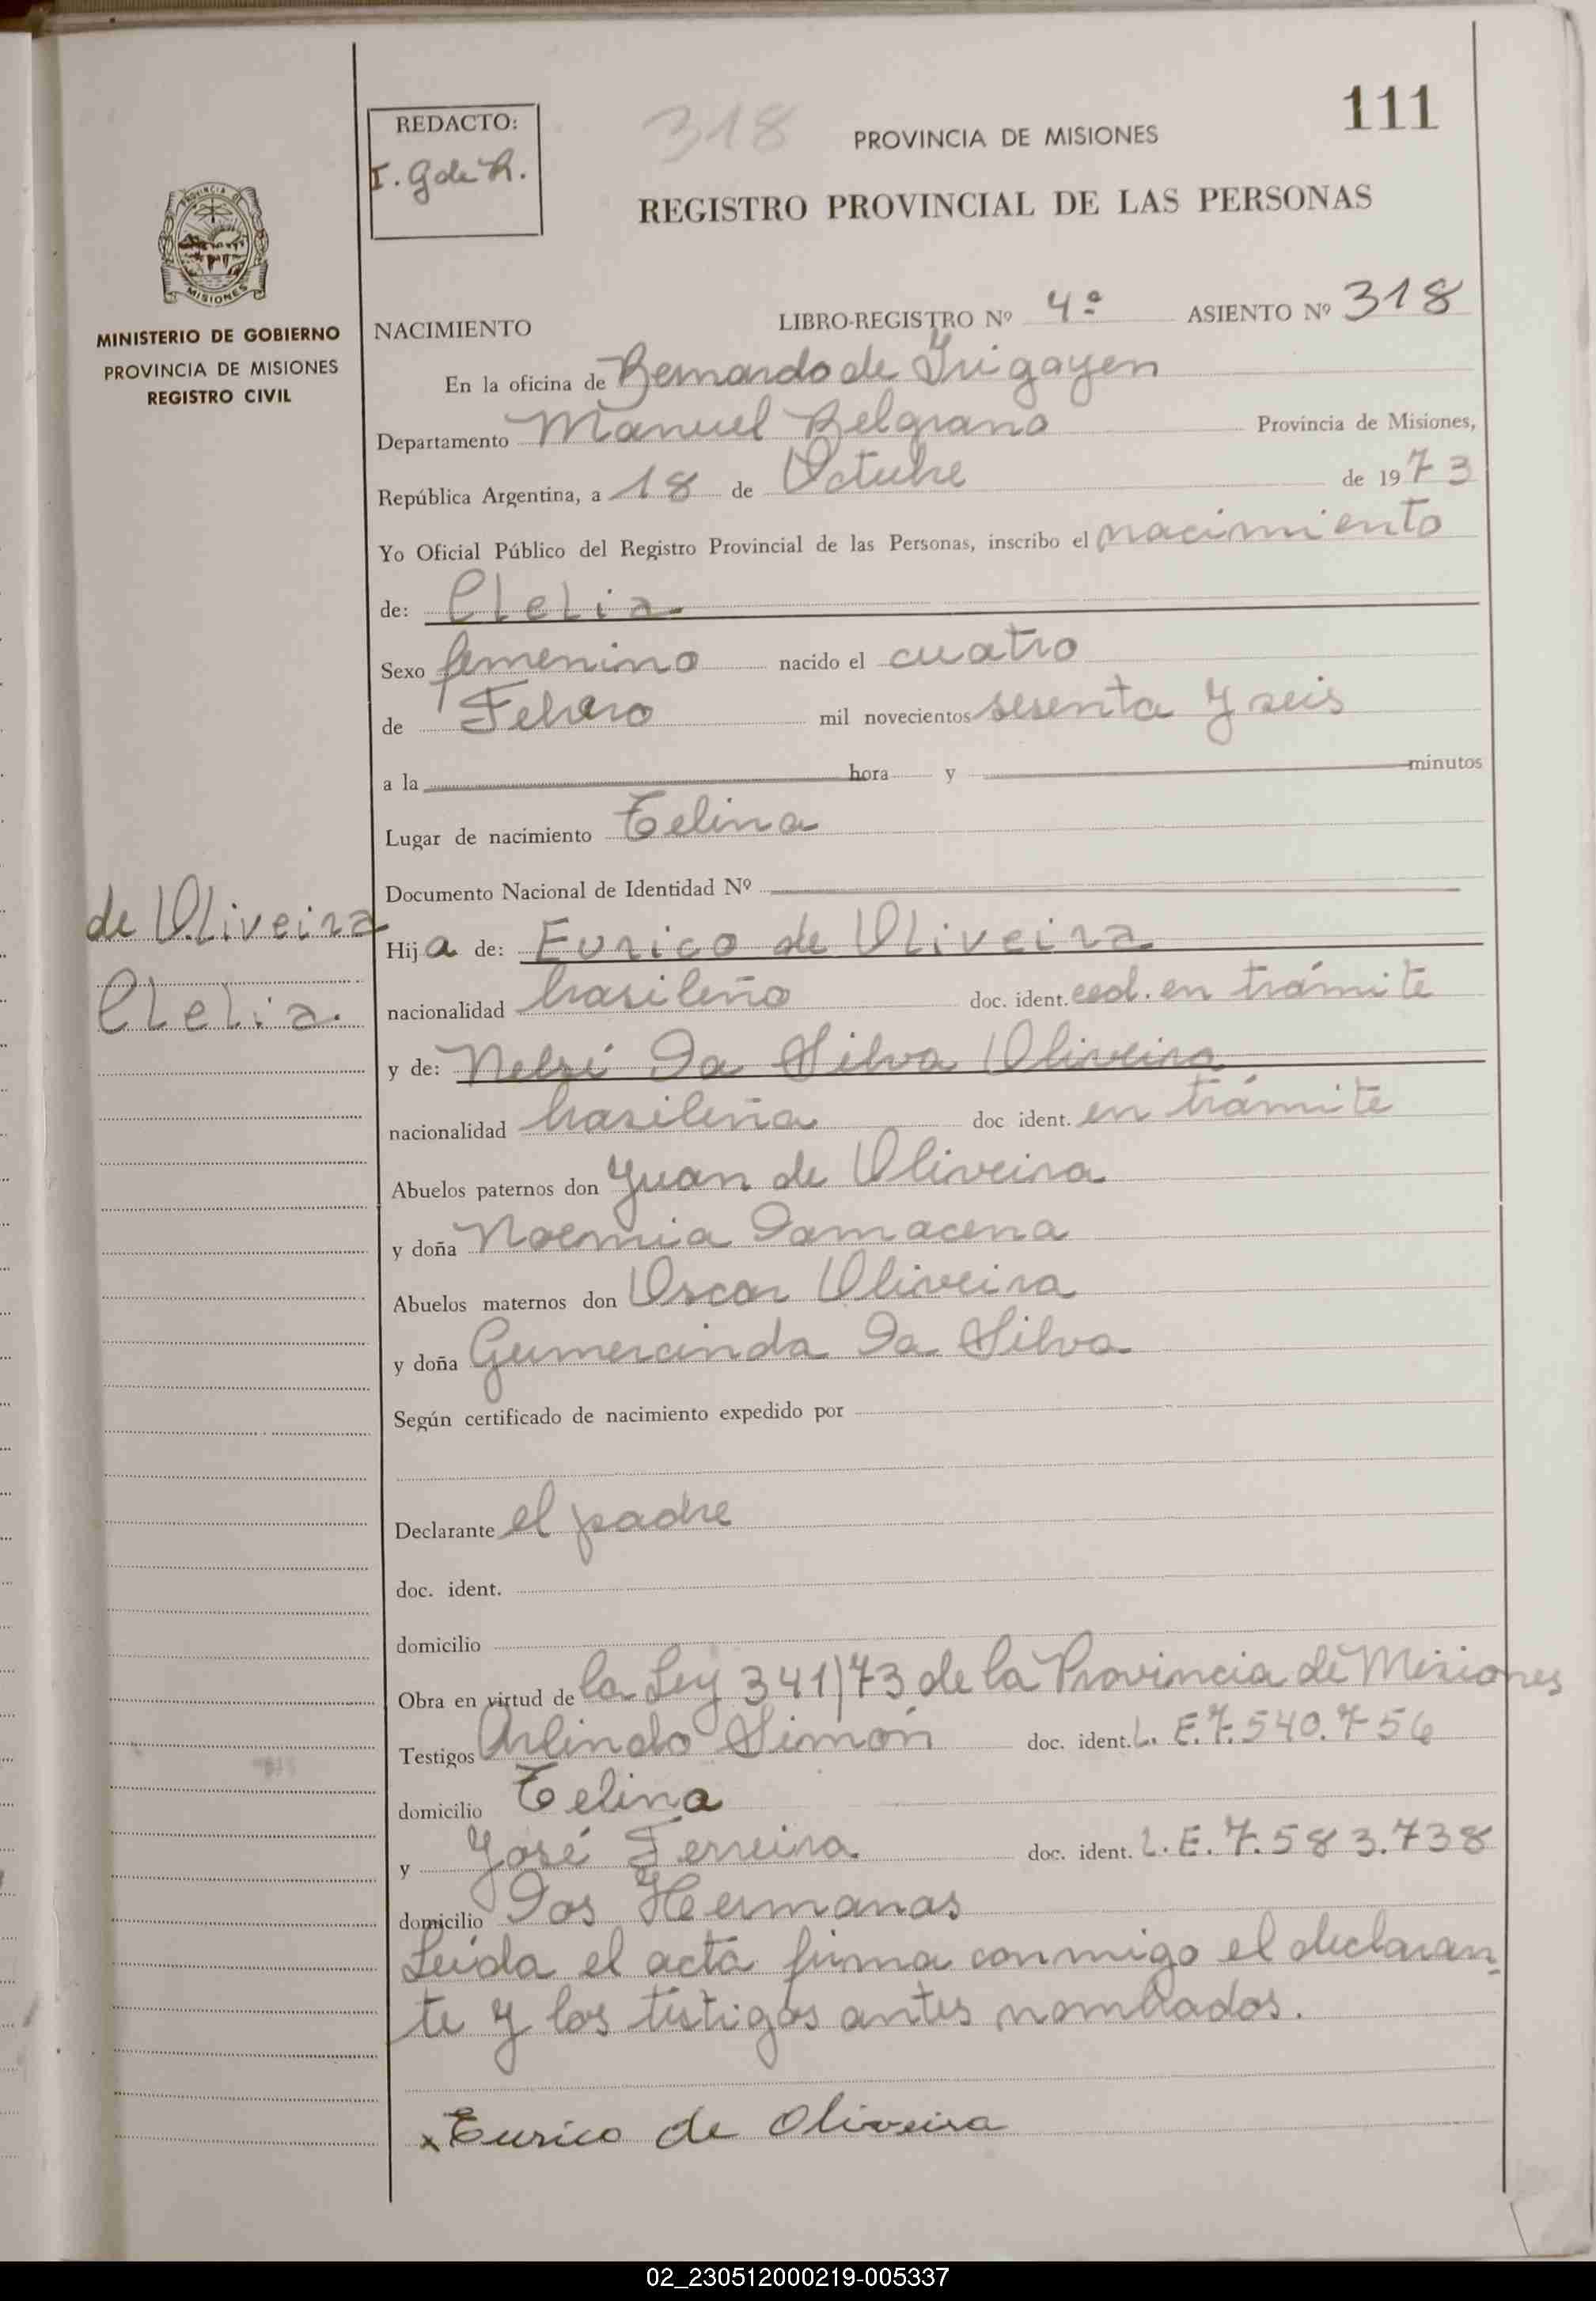 111
REDACTO:
I. G de R.
318
PROVINCIA DE MISIONES
REGISTRO PROVINCIAL DE LAS PERSONAS
PROVINCIA DE
MISIONES
MINISTERIO DE GOBIERNO
PROVINCIA DE MISIONES
REGISTRO CIVIL
NACIMIENTO LIBRO-REGISTRO Nº 4º ASIENTO Nº 318
En la oficina de Bernardo de Irigoyen
Departamento Manuel Belgrano Provincia de Misiones,
República Argentina, a 18 de Octubre de 1973
Yo Oficial Público del Registro Provincial de las Personas, inscribo el nacimiento
de: Clelia
Sexo femenino nacido el cuatro
de Febrero mil novecientos sesenta y seis
a la hora y minutos
Lugar de nacimiento Celina
Documento Nacional de Identidad Nº
de Oliveira
Clelia.
Hija de: Eurico de Oliveira
nacionalidad brasileño doc. ident. ced. en trámite
y de: Nelsi Da Silva Oliveira
nacionalidad brasileña doc ident. en trámite
Abuelos paternos don Juan de Oliveira
y doña Noemia Damacena
Abuelos maternos don Oscar Oliveira
y doña Gumercinda Da Silva
Según certificado de nacimiento expedido por
Declarante el padre
doc. ident.
domicilio
Obra en virtud de la Ley 341/73 de la Provincia de Misiones
Testigos Arlindo Simón doc. ident. L. E. 7.540.756
domicilio Celina
y José Ferreira doc. ident. L. E. 7.583.738
domicilio Dos Hermanas
Leída el acta firma conmigo el declaran-
te y los testigos antes nombrados.
x Eurico de Oliveira
02_230512000219-005337